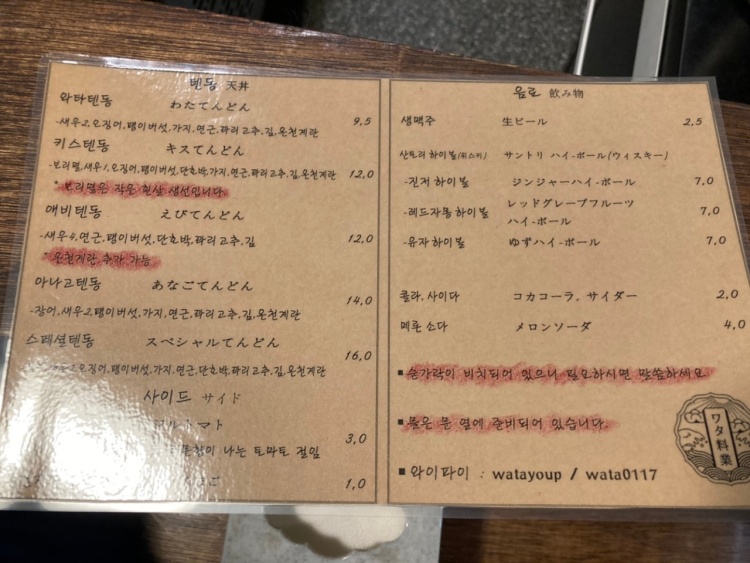 텐동 天丼
와타텐동 わたてんどん
-새우2,오징어,팽이버섯,가지,연근,꽈리고추,김,온천계란 9,5
키스텐동 キスてんどん
-보리멸,새우1,오징어,팽이버섯,단호박,가지,연근,꽈리고추,김,온천계란 12,0
*보리멸은 작은 흰살 생선입니다
애비텐동 えびてんどん
-새우4,연근,팽이버섯,단호박,꽈리고추,김 12,0
*온천계란 추가 가능
아나고텐동 あなごてんどん
14,0
-장어,새우2,팽이버섯,가지,연근,꽈리고추,김,온천계란
스페셜텐동 スペシャルてんどん
16,0
오징어,팽이버섯,가지,연근,단호박,꽈리고추,김,온천계란
사이드 サイド
マト
나는 토마토 절임 3,0
1,0
음료 飲み物
생맥주 生ビール 2,5
산토리 하이볼(위스키) サントリ ハイ-ボール(ウィスキー)
-진저 하이볼 ジンジャーハイ-ボール 7,0
-레드자몽 하이볼 レッドグレープフルーツ
ハイ-ボール 7,0
-유자 하이볼 ゆずハイ-ボール 7,0
콜라,사이다 コカコーラ, サイダー 2,0
메론 소다 メロンソーダ 4,0
▪숟가락이 비치되어 있으니 필요하시면 말씀하세요
▪물은 문 옆에 준비되어 있습니다.
▪와이파이 : watayoup / wata0117
ワタ料業